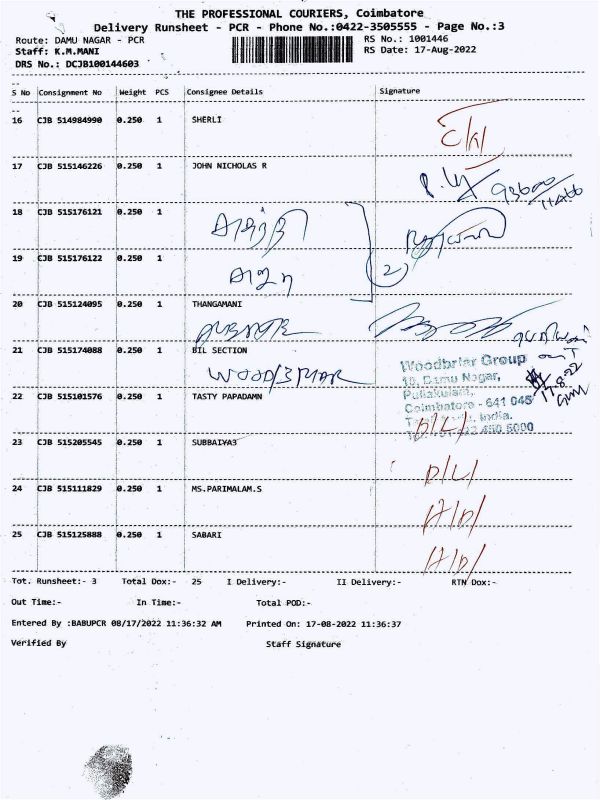 THE PROFESSIONAL COURIERS, Coimbatore
Delivery Runsheet - PCR - Phone No.:0422-3505555 - Page No.:3
Route: DAMU NAGAR - PCR
RS No.: 1001446
Staff: K.M.MANI
RS Date: 17-Aug-2022
DRS No.: DCJB100144603
S No Consignment No Weight PCS Consignee Details Signature
16 CJB 514984990 0.250 1 SHERLI
17 CJB 515146226 0.250 1 JOHN NICHOLAS R
18 CJB 515176121 0.250 1
19 CJB 515176122 0.250 1
20 CJB 515124095 0.250 1 THANGAMANI
21 CJB 515174088 0.250 1 BIL SECTION
WOODBRIAR
Woodbriar Group
18, Damu Nagar,
Puliakulam,
Coimbatore - 641 045
22 CJB 515101576 0.250 1 TASTY PAPADAMN
D/L/
23 CJB 515205545 0.250 1 SUBBAIYA3
D/L/
24 CJB 515111829 0.250 1 MS.PARIMALAM.S
A/D/
25 CJB 515125888 0.250 1 SABARI
A/D/
Tot. Runsheet:- 3 Total Dox:- 25 I Delivery:- II Delivery:- RTN Dox:-
Out Time:- In Time:- Total POD:-
Entered By :BABUPCR 08/17/2022 11:36:32 AM Printed On: 17-08-2022 11:36:37
Verified By Staff Signature